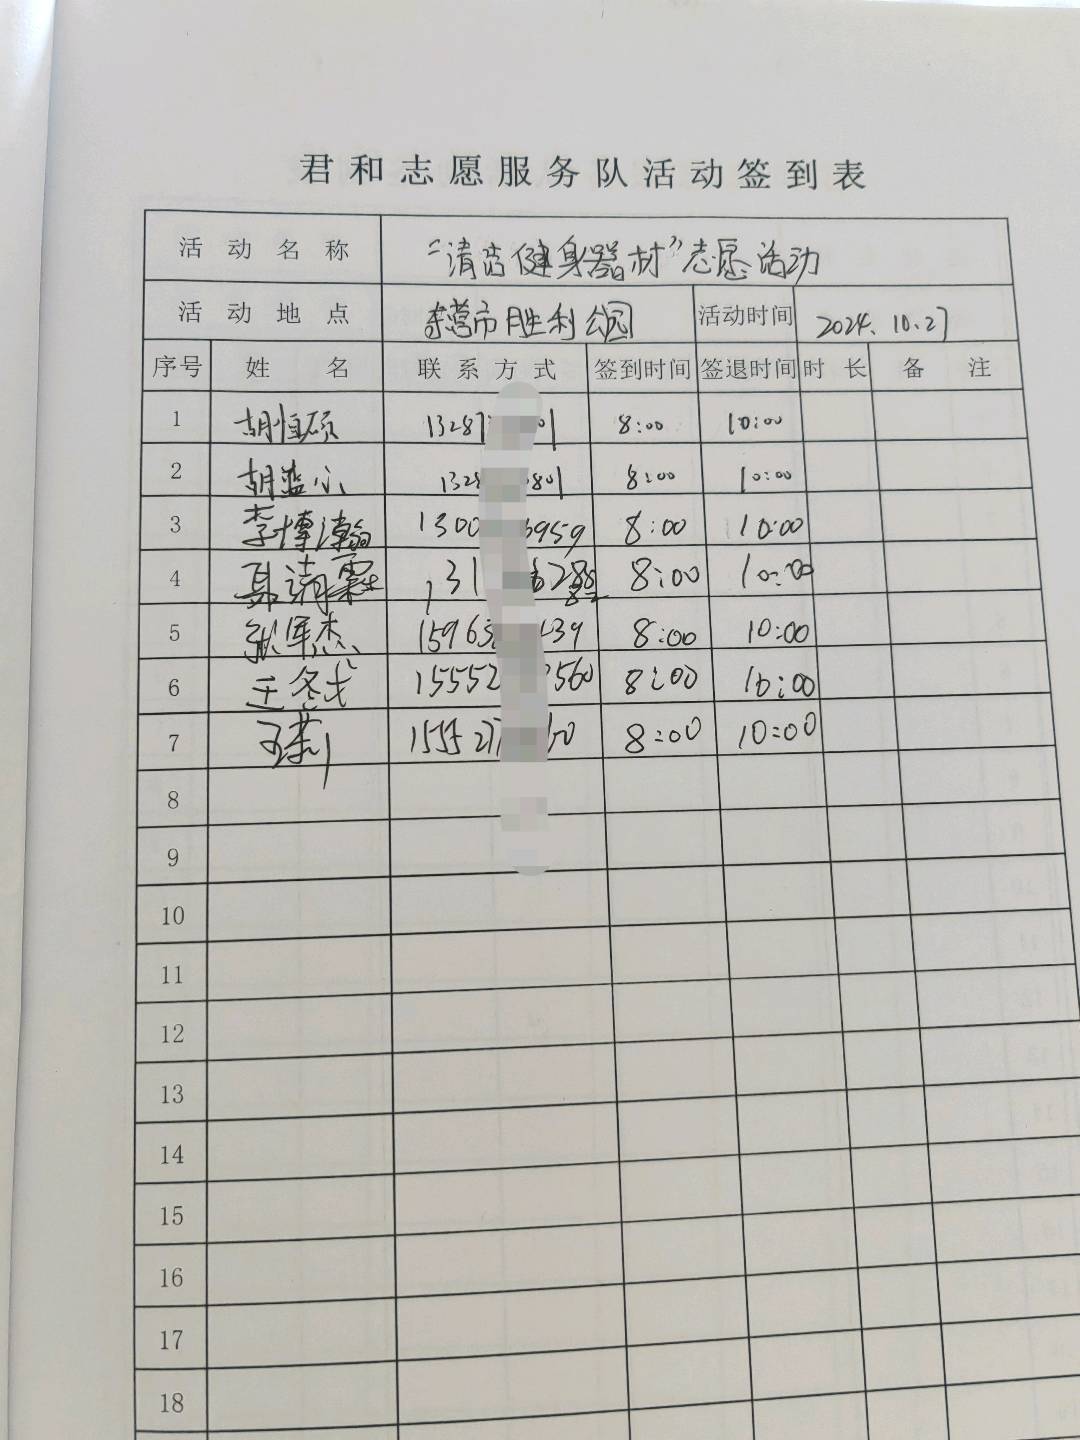 君和志愿服务队活动签到表
活动名称 “清洁健身器材”志愿活动
活动地点 东营市胜利公园 活动时间 2024.10.27
序号 姓名 联系方式 签到时间 签退时间 时长 备注
1 胡恒硕 1328 01 8:00 10:00
2 胡 132 801 8:00 10:00
3 李博瀚 1300 3959 8:00 10:00
4 31 8:00 10:00
5 张军杰 1596 39 8:00 10:00
6 王冬 15552 560 8:00 10:00
7 王莉 15552 8:00 10:00
8
9
10
11
12
13
14
15
16
17
18